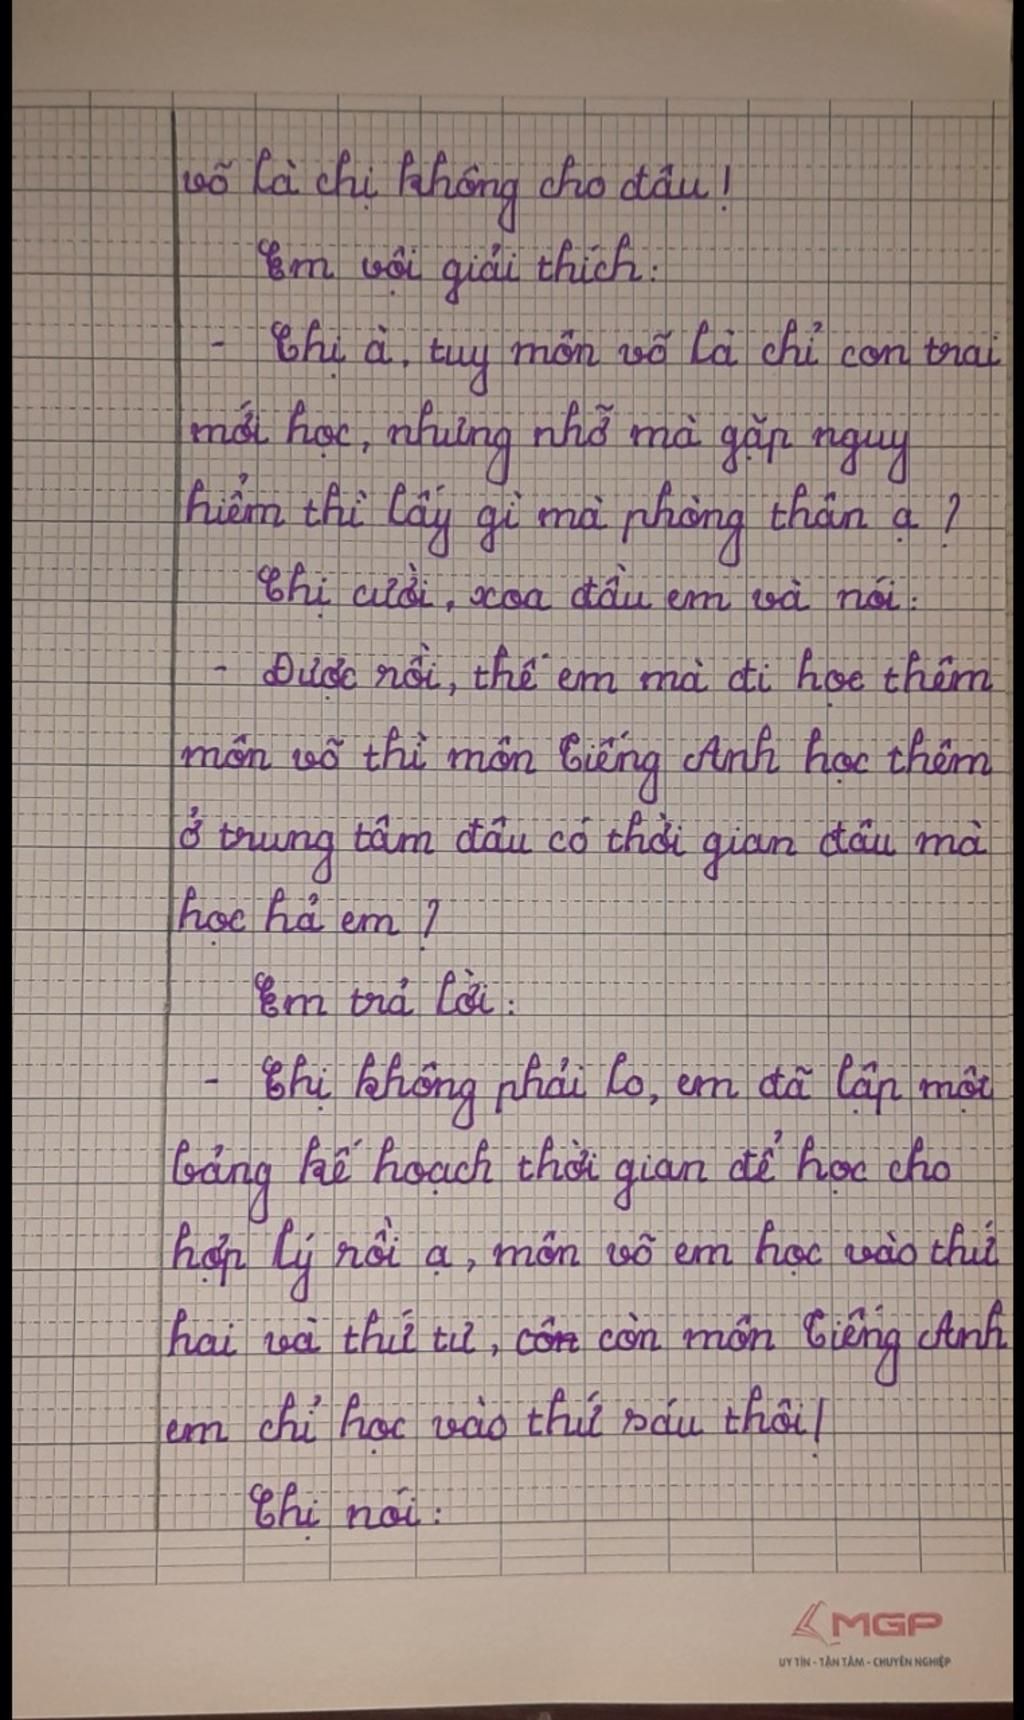 võ là chị không cho đâu!
Em vội giải thích:
- Chị à, tuy môn võ là chỉ con trai
mới học, nhưng nhỡ mà gặp nguy
hiểm thì lấy gì mà phòng thân ạ?
Chị cười, xoa đầu em và nói:
- Được rồi, thế em mà đi học thêm
môn võ thì môn Tiếng Anh học thêm
ở trung tâm đâu có thời gian đâu mà
học hả em?
Em trả lời:
- Chị không phải lo, em đã lập một
bảng kế hoạch thời gian để học cho
hợp lý rồi ạ, môn võ em học vào thứ
hai và thứ tư, còn còn môn Tiếng Anh
em chỉ học vào thứ sáu thôi!
Chị nói:
MGP
UY TÍN - TẬN TÂM - CHUYÊN NGHIỆP